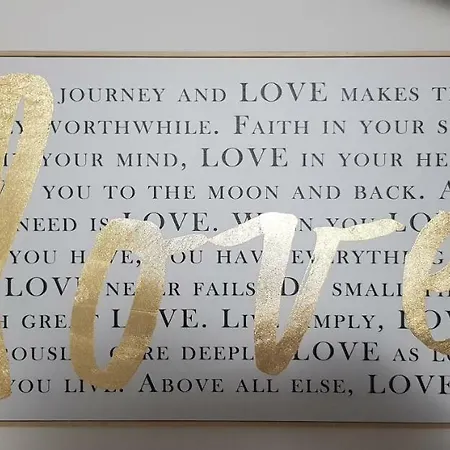 JOURNEY AND LOVE MAKES
WORTHWHILE. FAITH IN YOUR
YOUR MIND, LOVE IN YOUR
YOU TO THE MOON AND BACK.
NEED IS LOVE. YOU
YOU HAVE, YOU HAVE EVERYTHING
LOVE NEVER FAILS. SMALL
GREAT LOVE. SIMPLY,
DEEPLY LOVE AS
YOU LIVE. ABOVE ALL ELSE, LOVE
love